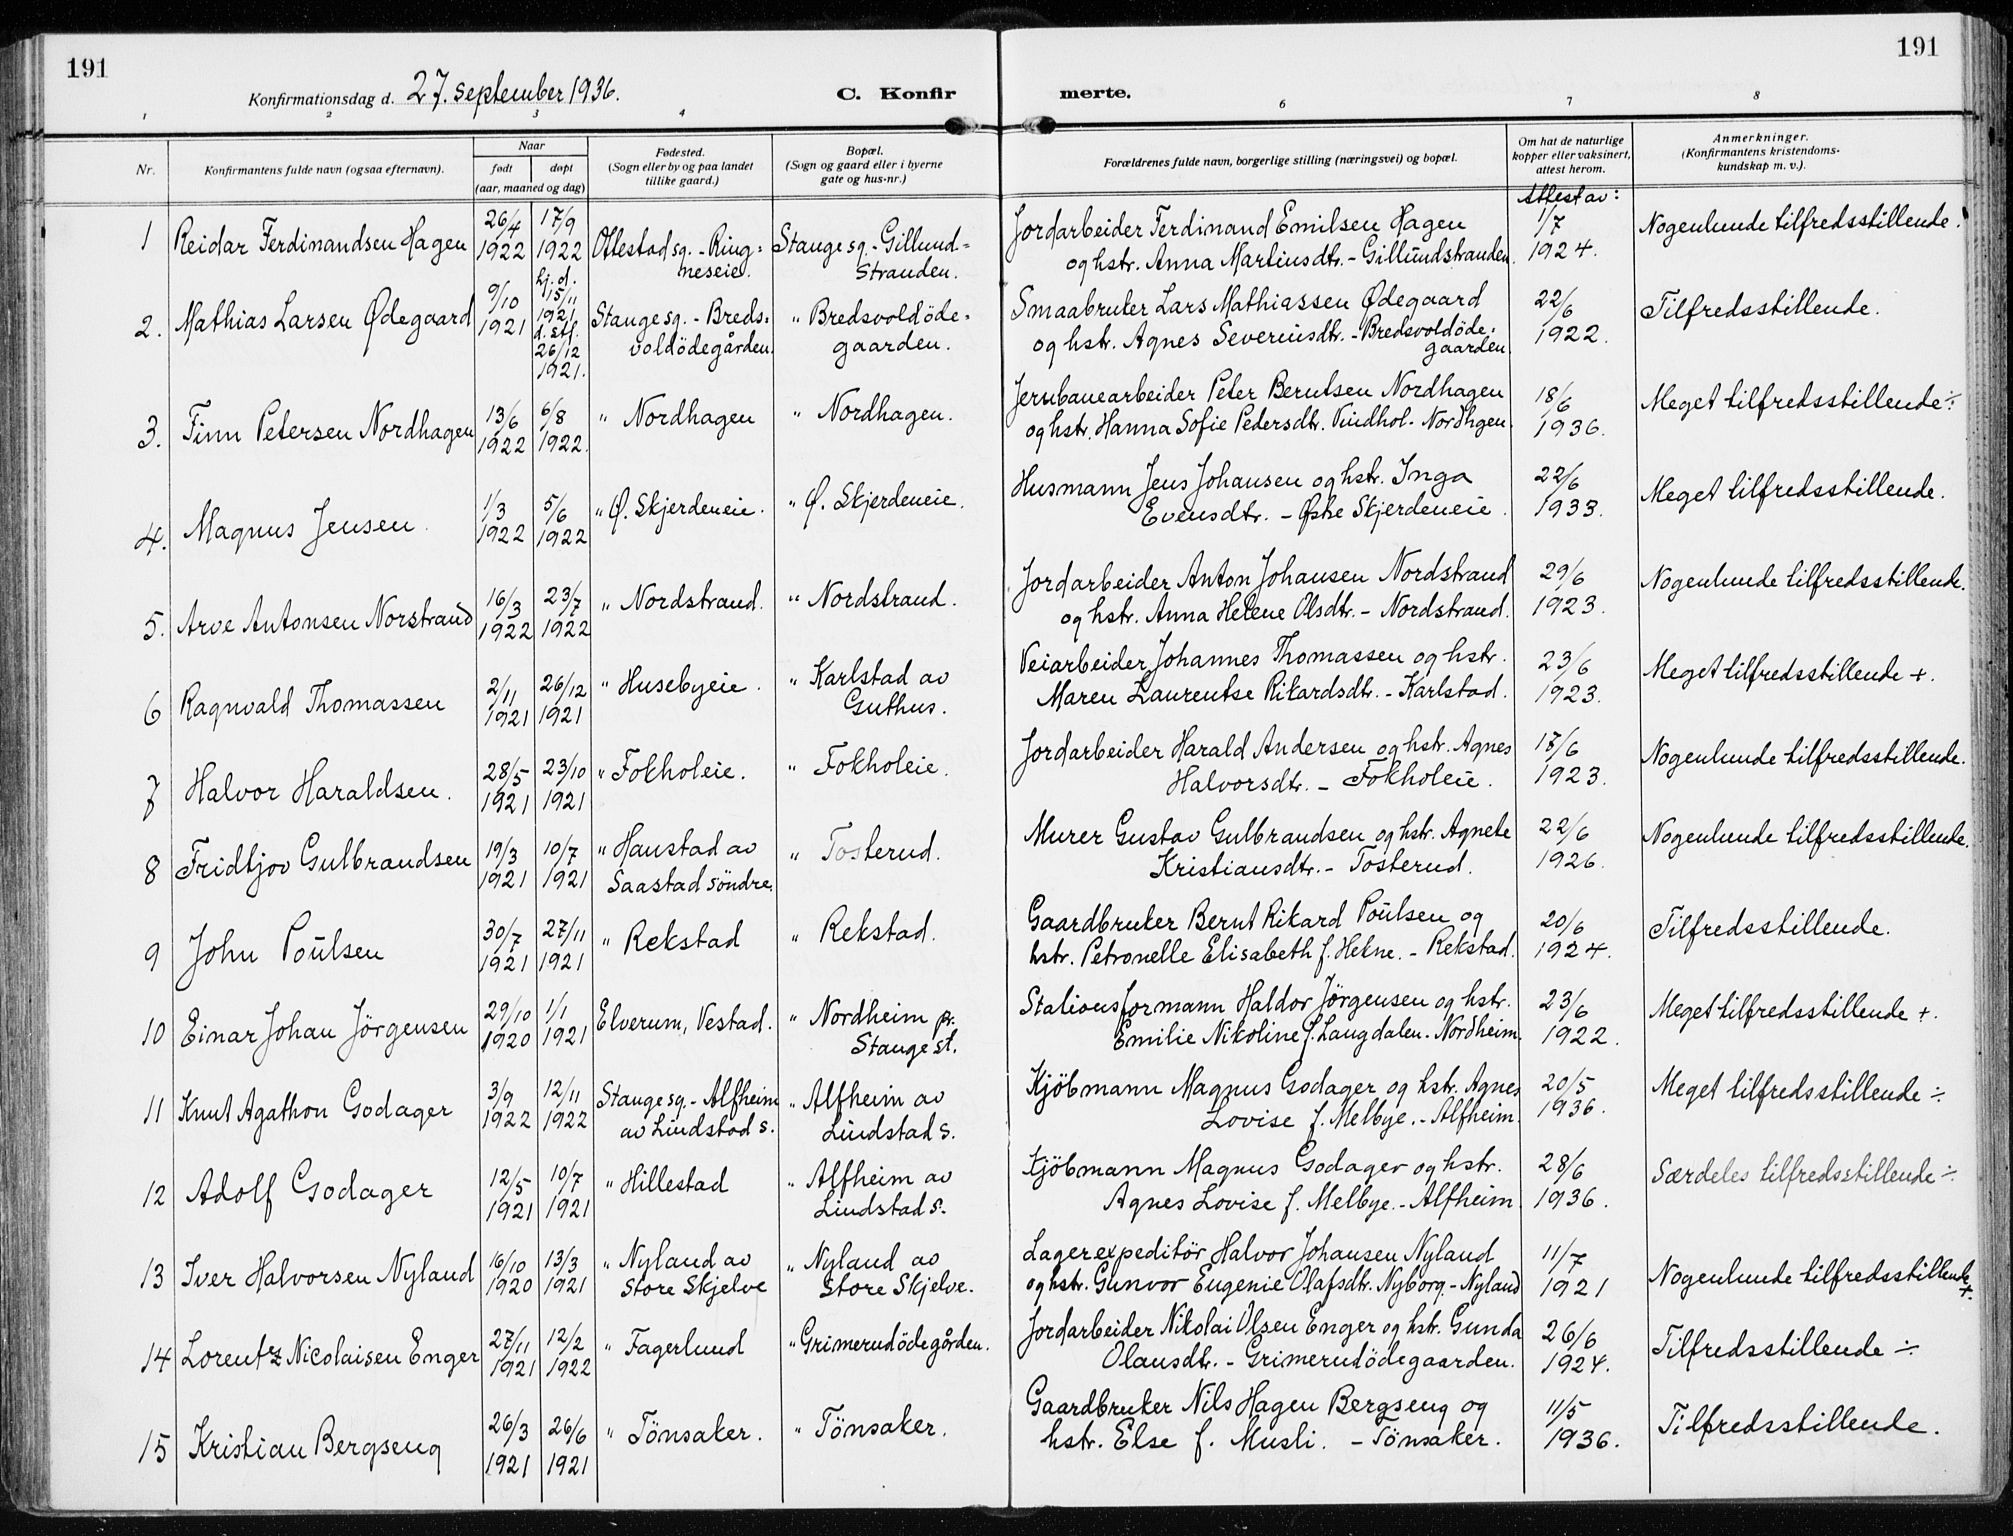 191
191
Konfirmationsdag d. 27. september 1936.
C. Konfir
merte.
1 2 3 4 6 7 8
Nr.
Konfirmantens fulde navn (ogsaa efternavn).
Naar
født
døpt
(aar, maaned og dag)
Fødested.
(Sogn eller by og paa landet
tillike gaard.)
Bopæl.
(Sogn og gaard eller i byerne
gate og hus-nr.)
Forældrenes fulde navn, borgerlige stilling (næringsvei) og bopæl.
Om hat de naturlige
kopper eller vaksinert,
attest herom.
Anmerkninger.
(Konfirmantens kristendoms-
kundskap m. v.).
Attest av:
1 Reidar Ferdinandsen Hagen 26/4 1922 17/9 1922 Ottestad sg. - Ring-
neseie. Stange sg. - Gillund-
stranden. Jordarbeider Ferdinand Emilsen Hagen
og hstr. Anna Martinsdtr. - Gillundstranden. 1/7 1924. Nogenlunde tilfredsstillende.
2. Mathias Larsen Ødegaard 9/10 1921 hj. d. 15/11 1921 d. stf. 26/12 1921. Stange sg. - Breds-
voldödegården. " Bredsvoldöde-
gaarden. Smaabruker Lars Mathiassen Ødegaard
og hstr. Agnes Severinsdtr. - Bredsvoldöde-
gaarden 22/6 1922. Tilfredsstillende.
3. Finn Petersen Nordhagen 13/6 1922 6/8 1922. " Nordhagen " Nordhagen. Jernbanearbeider Peter Berntsen Nordhagen
og hstr. Hanna Sofie Pedersdtr. Vindhol - Nordhgen. 18/6 1936. Meget tilfredsstillende ÷
4. Magnus Jensen. 1/3 1922 5/6 1922 " Ø. Skjerdeneie. " Ø. Skjerdeneie. Husmann Jens Johansen og hstr. Inga
Evensdtr. - Østre Skjerdeneie. 22/6 1933. Meget tilfredsstillende.
5. Arve Antonsen Norstrand 16/3 1922 23/7 1922 " Nordstrand. " Nordstrand. Jordarbeider Anton Johansen Nordstrand
og hstr. Anna Helene Olsdtr. - Nordstrand. 29/6 1923. Nogenlunde tilfredsstillende.
6 Ragnvald Thomassen 2/11 1921 26/12 1921 " Husebyeie. " Karlstad av
Guthus. Veiarbeider Johannes Thomassen og hstr.
Maren Laurentse Rikardsdtr. - Karlstad. 23/6 1923. Meget tilfredsstillende +.
7 Halvor Haraldsen. 28/5 1921 23/10 1921 " Fokholeie. " Fokholeie. Jordarbeider Harald Andersen og hstr. Agnes
Halvorsdtr. - Fokholeie. 17/6 1923. Nogenlunde tilfredsstillende.
8 Fridtjov Gulbrandsen 19/3 1921 10/7 1921 " Haustad av
Saastad söndre. " Tosterud. Murer Gustav Gulbrandsen og hstr. Agnete
Kristiansdtr. - Tosterud. 22/6 1926. Nogenlunde tilfredsstillende.
9 John Poulsen 30/7 1921 27/11 1921 " Rekstad " Rekstad. Gaardbruker Bernt Rikard Poulsen og
hstr. Petronelle Elisabeth f. Hekne. - Rekstad. 20/6 1924. Tilfredsstillende.
10 Einar Johan Jörgensen 29/10 1920 1/1 1921 Elverum, Vestad. " Nordheim pr.
Stange st. Stationsformann Haldor Jörgensen og hstr.
Emilie Nikoline f. Langdalen - Nordheim. 23/6 1922. Meget tilfredsstillende +.
11 Knut Agathon Godager 3/9 1922 12/11 1922 Stange sg. - Alfheim
av Lindstad s. " Alfheim av
Lindstad s. Kjöbmann Magnus Godager og hstr. Agnes
Lovise f. Melbye. - Alfheim. 20/5 1936. Meget tilfredsstillende ÷
12 Adolf Godager 12/5 1921 10/7 1921 " Hillestad " Alfheim av
Lindstad s. Kjöbmann Magnus Godager og hstr.
Agnes Lovise f. Melbye. - Alfheim 28/6 1936. Særdeles tilfredsstillende ÷
13 Iver Halvorsen Nyland 16/10 1920 13/3 1921 " Nyland av
store Skjelve " Nyland av
store Skjelve. Lagerexpeditör Halvor Johansen Nyland
og hstr. Gunvor Eugenie Olafsdtr. Nyborg. - Nyland 11/7 1921 Nogenlunde tilfredsstillende +.
14 Lorentz Nicolaisen Enger 27/11 1921 12/2 1922 " Fagerlund " Grimerudödegården. Jordarbeider Nikolai Olsen Enger og hstr. Gunda
Olausdtr. - Grimerudödegaarden. 26/6 1924. Tilfredsstillende ÷
15 Kristian Bergseng 26/3 1921 26/6 1921 " Tönsaker. " Tönsaker. Gaardbruker Nils Hagen Bergseng og
hstr. Else f. Musli. - Tönsaker. 11/5 1936. Tilfredsstillende.